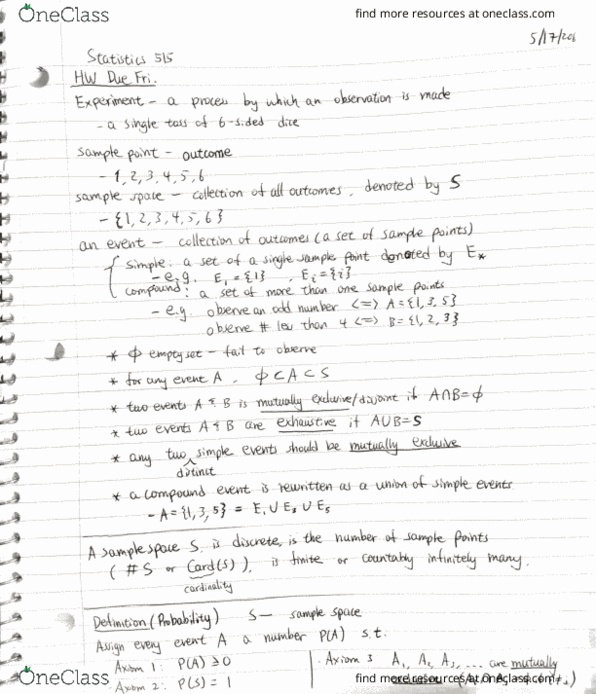 OneClass
find more resources at oneclass.com
5/17/201
Statistics 515
HW Due Fri.
Experiment - a process by which an observation is made
- a single toss of 6-sided dice
sample point - outcome
- 1, 2, 3, 4, 5, 6
sample space - collection of all outcomes, denoted by S
- {1, 2, 3, 4, 5, 6}
an event - collection of outcomes (a set of sample points)
simple: a set of a single sample point denoted by E*
- e.g. E₁ = {1} , Eᵢ = {i}
compound: a set of more than one sample points
- e.g. observe an odd number <=> A = {1, 3, 5}
observe # less than 4 <=> B = {1, 2, 3}
* ϕ empty set - fail to observe
* for any event A, ϕ ⊂ A ⊂ S
* two events A & B is mutually exclusive/disjoint if A∩B = ϕ
* two events A & B are exhaustive if A∪B = S
* any two simple events should be mutually exclusive
distinct
* a compound event is rewritten as a union of simple events
- A = {1, 3, 5} = E₁ ∪ E₃ ∪ E₅
A sample space S is discrete, is the number of sample points
(#S or Card(S)), is finite or countably infinitely many.
cardinality
Definition (Probability) S — sample space
Assign every event A a number P(A) s.t.
Axiom 1: P(A) ≥ 0
Axiom 2: P(S) = 1
Axiom 3 A₁, A₂, A₃, ... are mutually
OneClass
find more resources at oneclass.com